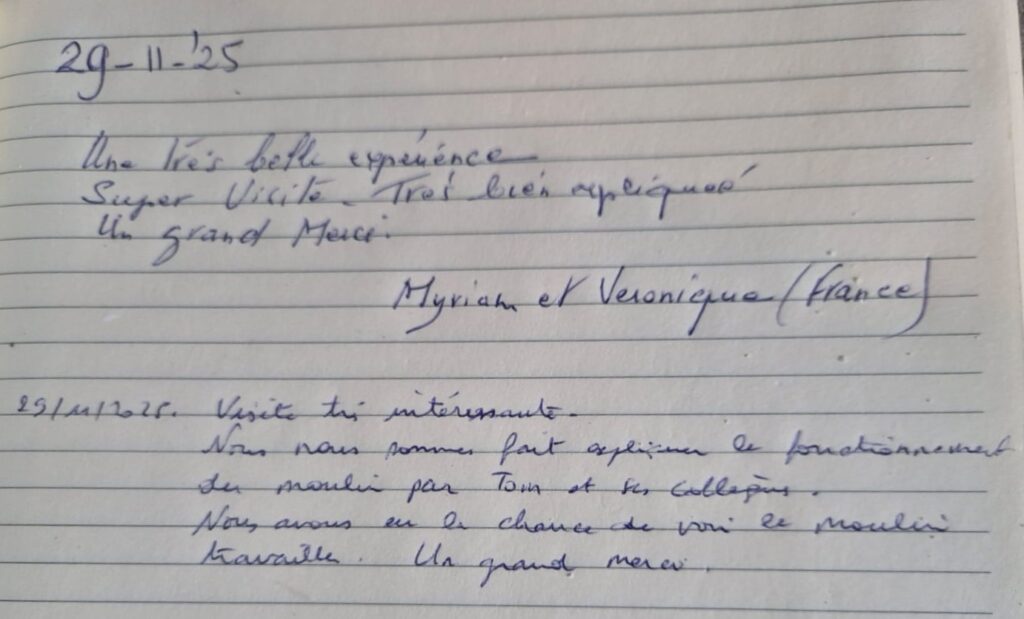 29-11-'25
Une très belle expérience
Super Visite. Très bien expliqueé
Un grand Merci.
Myriam et Veronique (France)
29/11/2025. Visite très intéressante.
Nous nous sommes fait expliquer le fonctionnement
du moulin par Tom et ses collègues.
Nous avons eu la chance de voir le moulin
travailler. Un grand merci.